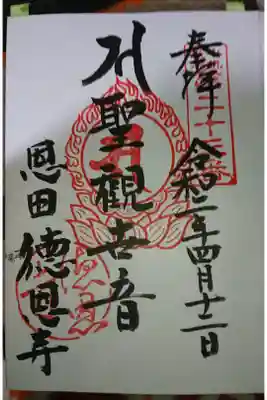 奉拝 令和二年四月十二日
聖觀世音
恩田 徳恩寺